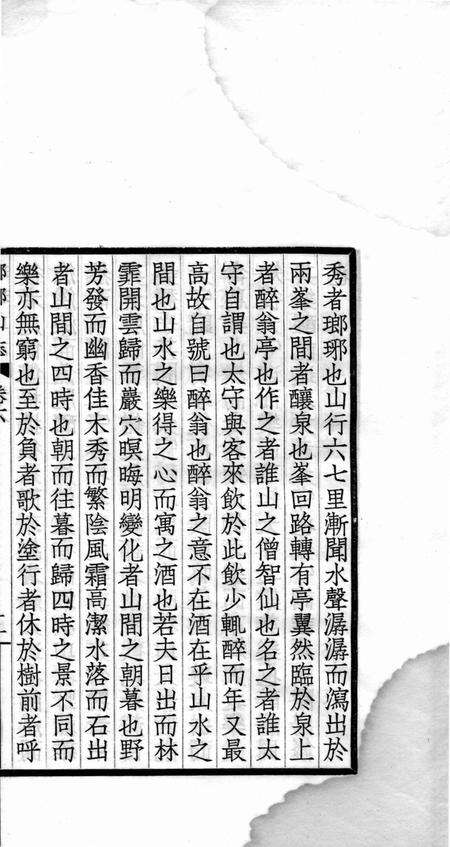 秀者瑯琊也山行六七里漸聞水聲潺潺而瀉出於
兩峯之間者釀泉也峯回路轉有亭翼然臨於泉上
者醉翁亭也作之者誰山之僧智仙也名之者誰太
守自謂也太守與客來飲於此飲少輒醉而年又最
高故自號曰醉翁也醉翁之意不在酒在乎山水之
間也山水之樂得之心而寓之酒也若夫日出而林
霏開雲歸而巖穴暝晦明變化者山間之朝暮也野
芳發而幽香佳木秀而繁陰風霜高潔水落而石出
者山間之四時也朝而往暮而歸四時之景不同而
樂亦無窮也至於負者歌於塗行者休於樹前者呼